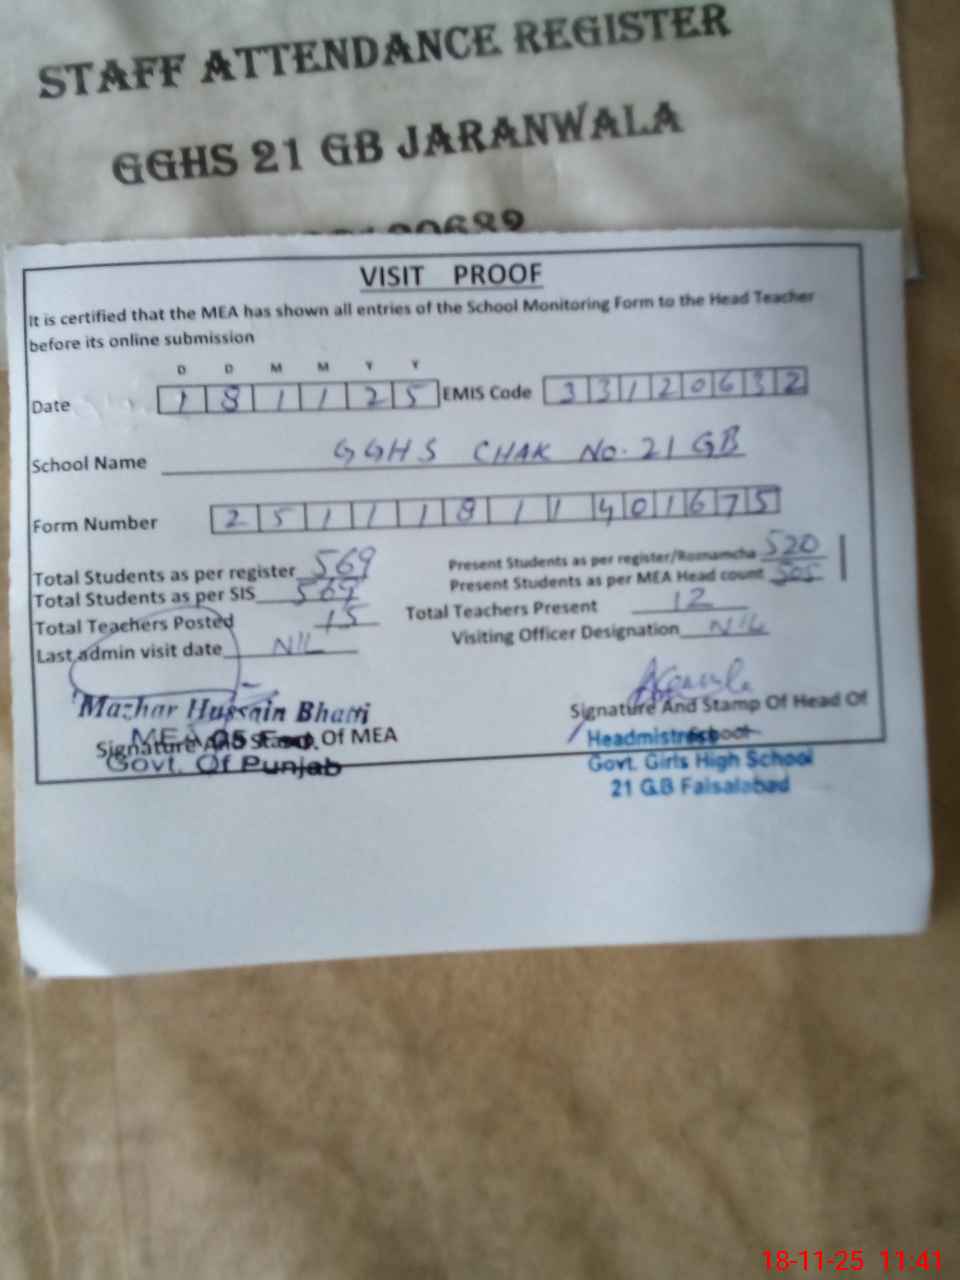 STAFF ATTENDANCE REGISTER
GGHS 21 GB JARANWALA
VISIT PROOF
It is certified that the MEA has shown all entries of the School Monitoring Form to the Head Teacher
before its online submission
D D M M Y Y
Date 1 8 1 1 2 5 EMIS Code 3 3 1 2 0 6 3 2
School Name GGHS CHAK No. 21 GB
Form Number 2 5 1 1 1 8 1 1 4 0 1 6 7 5
Total Students as per register 569 Present Students as per register/Roznamcha 520
Total Students as per SIS 569 Present Students as per MEA Head count 505
Total Teachers Posted 15 Total Teachers Present 12
Last admin visit date NIL Visiting Officer Designation NIL
Mazhar Hussain Bhatti
Signature And Stamp Of MEA
Govt. Of Punjab
Signature And Stamp Of Head Of
School
Headmistress
Govt. Girls High School
21 G.B Faisalabad
18-11-25 11:41